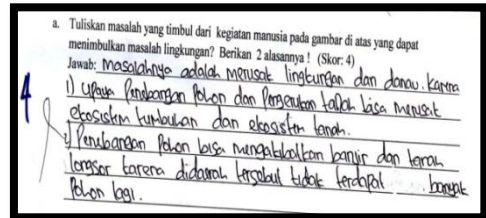 a. Tuliskan masalah yang timbul dari kegiatan manusia pada gambar di atas yang dapat
menimbulkan masalah lingkungan? Berikan 2 alasannya ! (Skor: 4)
Jawab: Masalahnya adalah merusak lingkungan dan danau. Karena
4
1) Upaya Penebangan Pohon dan Pengerukan tanah bisa merusak
ekosistem tumbuhan dan ekosistem tanah.
2) Penebangan Pohon bisa mengakibatkan banjir dan tanah
longsor karena didaerah tersebut tidak terdapat banyak
Pohon lagi.